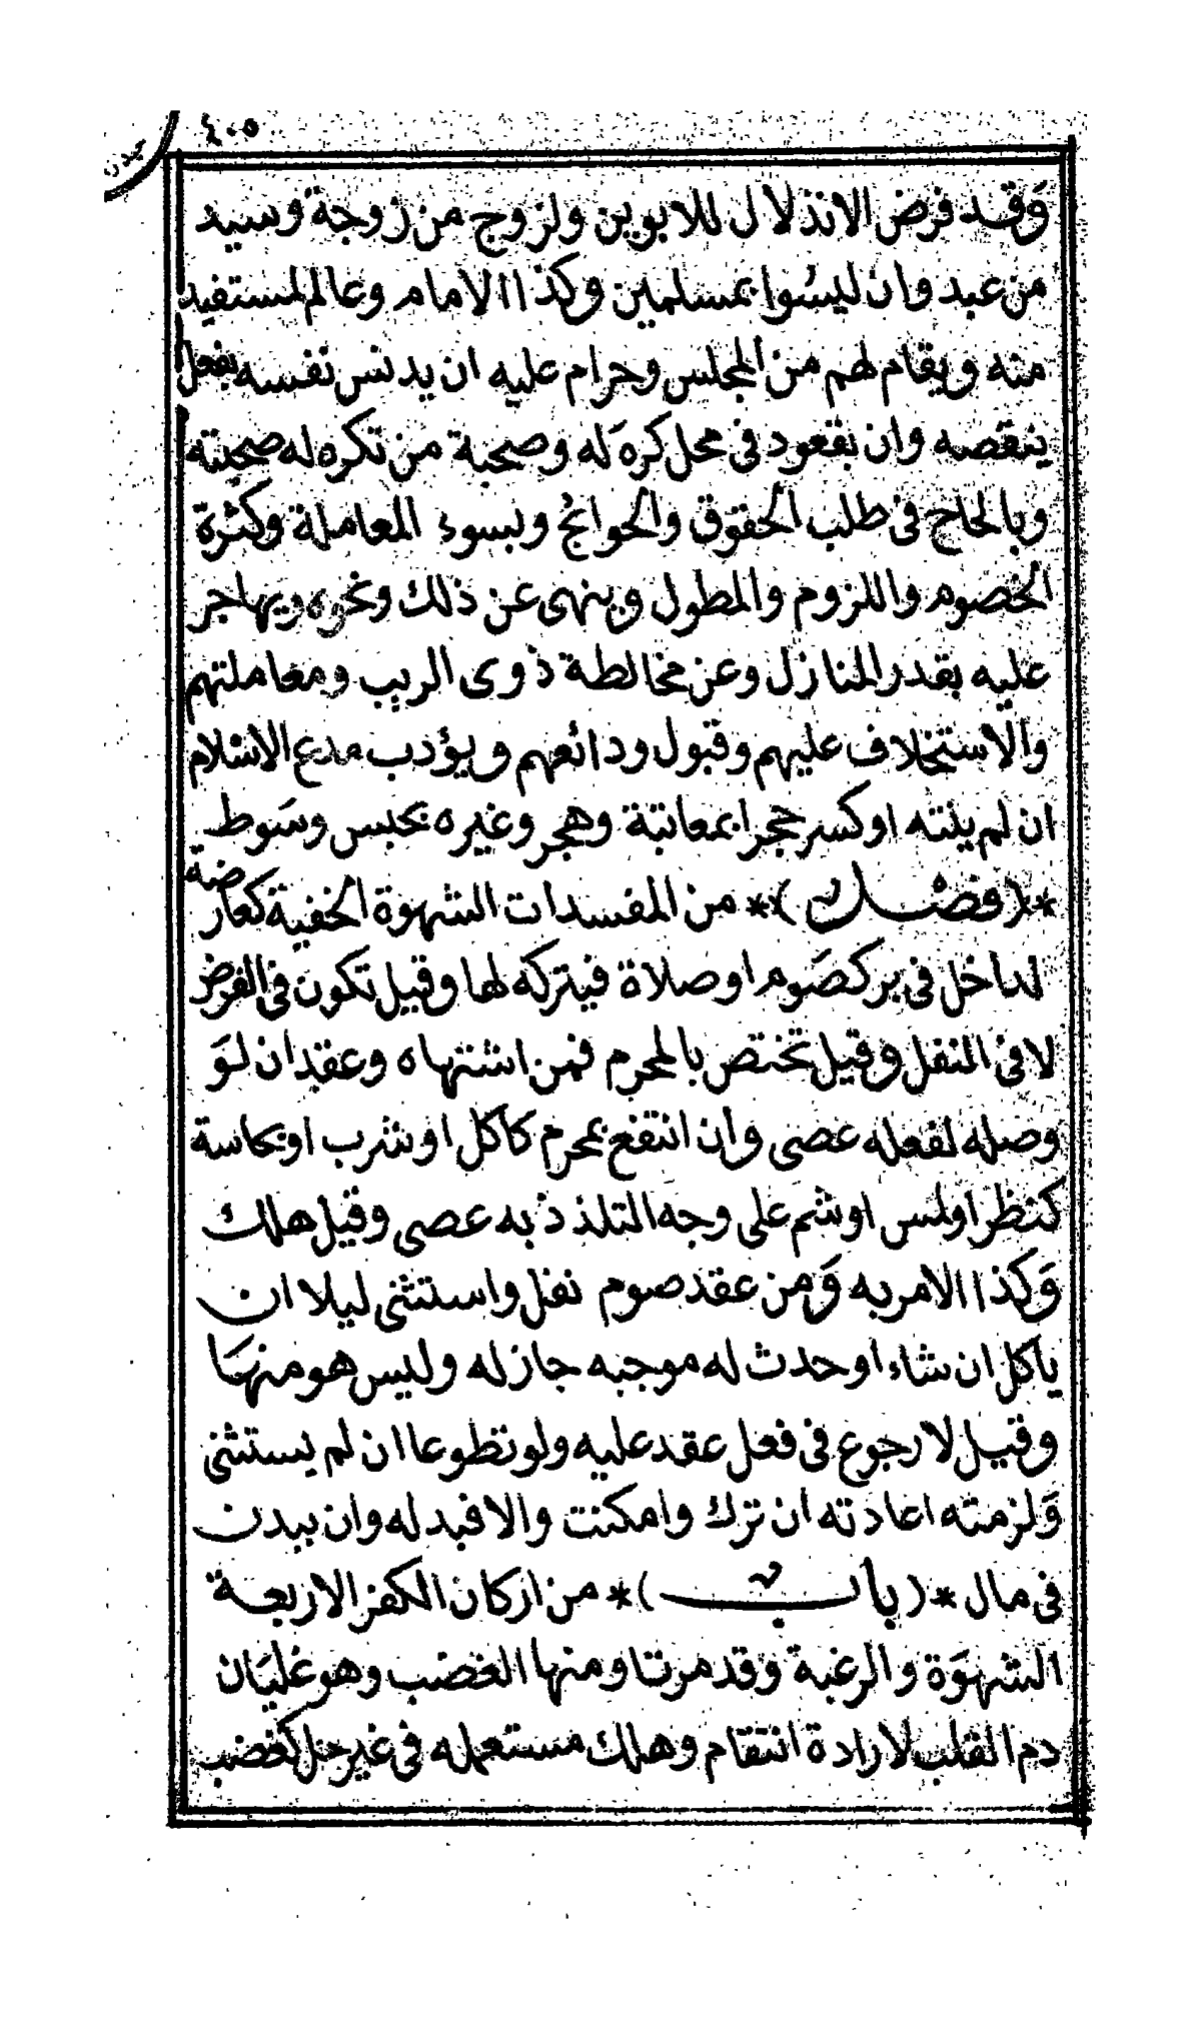 ٤٠٥
وَقد فرض الانذلال للابوين ولزوج من زوجة وسيد
من عبد وان ليسُوا بمسلمين وكذا الامام وعالم لمستفيد
منه ويقام لهم من المجلس وحرام عليه ان يدنس نفسه بفعل
ينقصه وان بقعود فى محل كرهَ له وصحبة من تكره له صحبته
وبالحاح فى طلب الحقوق والحوائج وبسوء المعاملة وكثرة
الخصوم واللزوم والمطول وينهى عن ذلك ونحوه ويهاجر
عليه بقدر المنازل وعن مخالطة ذوى الريب ومعاملتهم
والاستخلاف عليهم وقبول ودائعهم ويؤدب مدع الاسْلام
ان لم ينته اوكسر حجرا بمعاتبة وهجر وغيره بحبس وسَوط
*(فصْــل)* من المفسدات الشهوة الخفية كعارضة
لداخل فى بر كصَوم اوصلاة فيتركه لها وقيل تكون فى الفرض
لا فى النفل وقيل تختص بالمحرم فمن اشتهاه وعقد ان لوَ
وصله لفعله عصى وان انتفع بمحرم كاكل اوشرب اوبحاسة
كنظر اولمس اوشم على وجه التلذذ به عصى وقيل هلك
وَكذا الامر به وَمن عقد صوم نفل واستثنى ليلا ان
ياكل ان شاء اوحدث له موجبه جاز له وليس هو منهَا
وقيل لا رجوع فى فعل عقد عليه ولو تطوعا ان لم يستثنى
وَلزمته اعادته ان ترك وامكنت والا فبدله وان ببدن
فى مال *(بابــــ)* من اركان الكفر الاربعة
الشهوَة والرغبة وقد مرتا ومنها الغضب وهو غليَان
دم القلب لارادة انتقام وهلك مستعمله فى غير حل كغضب